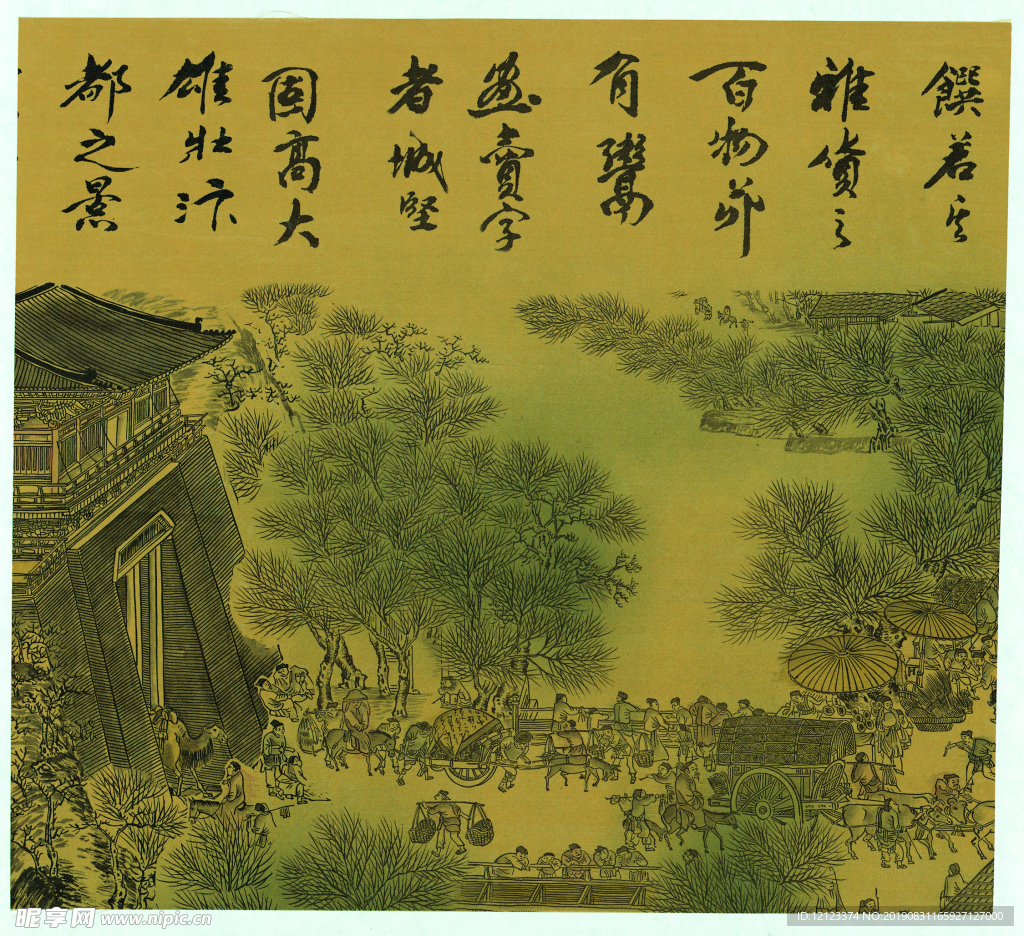 饌若
雅貨之
百物
有鬻
畫賣字
者城堅
固高大
雄壯汴
都之景
昵享网 www.nipic.cn
ID:12123374 NO:20190831165927127000